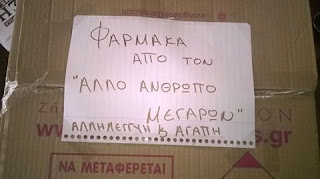 ΦΑΡΜΑΚΑ
ΑΠΟ ΤΟΝ
"ΑΛΛΟ ΑΝΘΡΩΠΟ
ΜΕΓΑΡΩΝ"
ΑΛΛΗΛΕΓΓΥΗ & ΑΓΑΠΗ
www. s.gr
ΝΑ ΜΕΤΑΦΕΡΕΤΑΙ